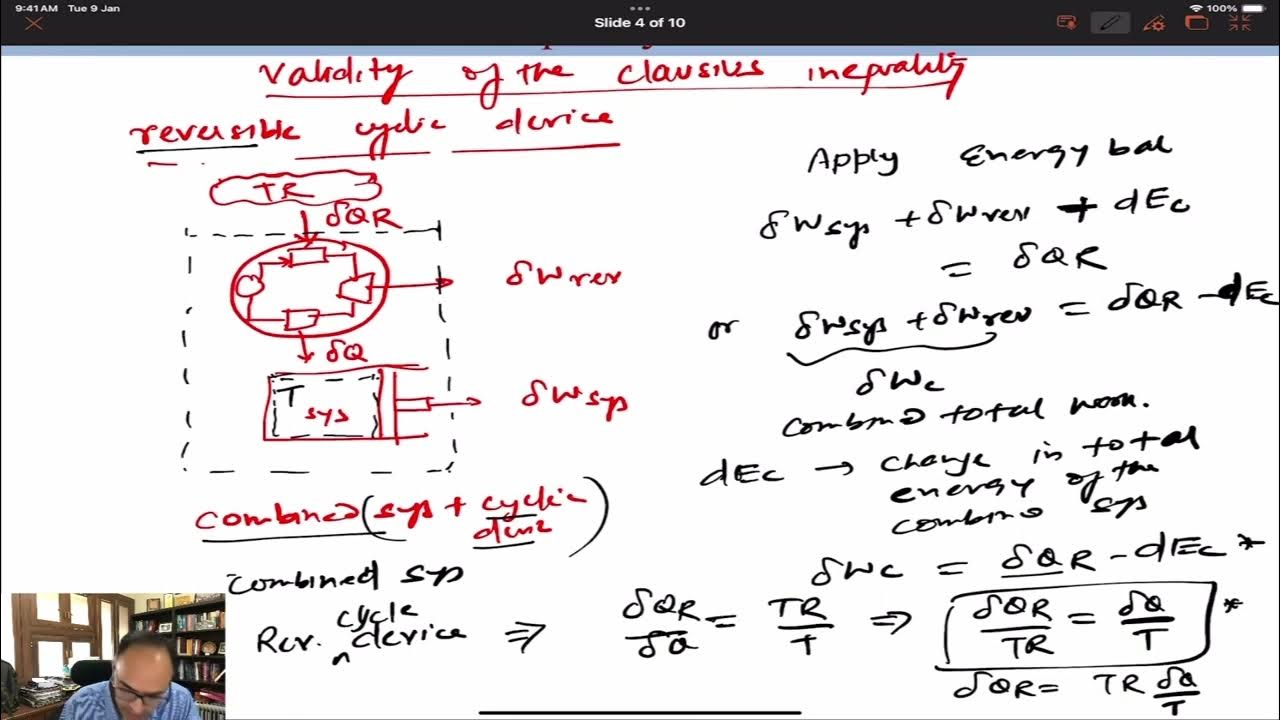 9:41 AM Tue 9 Jan
100%
Slide 4 of 10
Validity of the Clausius inequality
reversible cyclic device
TR
δQR
δWrev
δQ
T
sys
δWsys
combined (sys + cyclic
device)
Combined sys
Rev. cycle device ⇒ δQR/δQ = TR/T ⇒ δQR/TR = δQ/T *
δQR = TR δQ/T
Apply Energy bal
δWsys + δWrev + dEc
= δQR
or δWsys + δWrev = δQR - dEc
δWc
combined total work.
dEc → change in total
energy of the
combine sys
δWc = δQR - dEc *